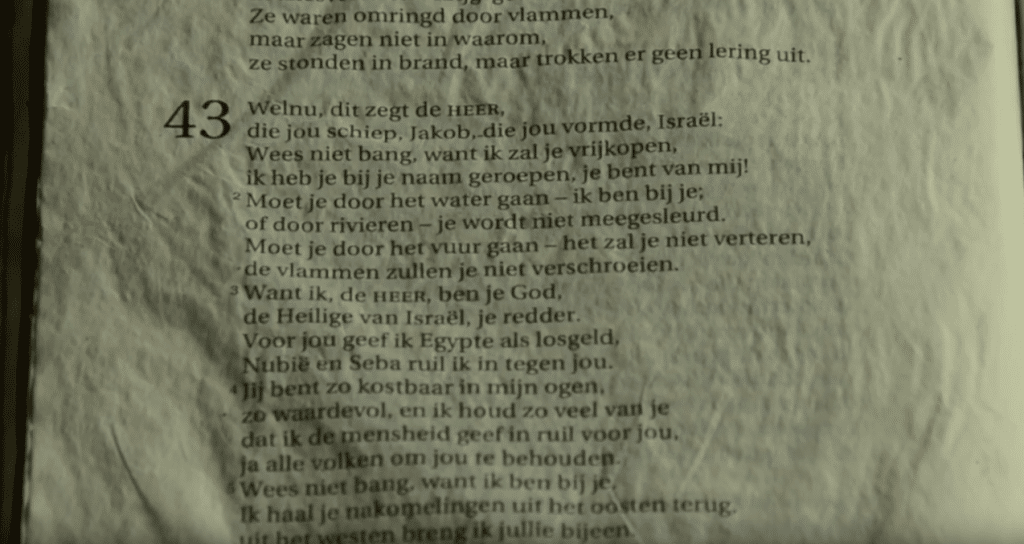 Ze waren omringd door vlammen,
maar zagen niet in waarom,
ze stonden in brand, maar trokken er geen lering uit.
43 Welnu, dit zegt de HEER,
die jou schiep, Jakob, die jou vormde, Israël:
Wees niet bang, want ik zal je vrijkopen,
ik heb je bij je naam geroepen, je bent van mij!
2 Moet je door het water gaan – ik ben bij je;
of door rivieren – je wordt niet meegesleurd.
Moet je door het vuur gaan – het zal je niet verteren,
de vlammen zullen je niet verschroeien.
3 Want ik, de HEER, ben je God,
de Heilige van Israël, je redder.
Voor jou geef ik Egypte als losgeld,
Nubië en Seba ruil ik in tegen jou.
4 Jij bent zo kostbaar in mijn ogen,
zo waardevol, en ik houd zo veel van je
dat ik de mensheid geef in ruil voor jou,
ja alle volken om jou te behouden.
5 Wees niet bang, want ik ben bij je,
Ik haal je nakomelingen uit het oosten terug,
uit het westen breng ik jullie bijeen.